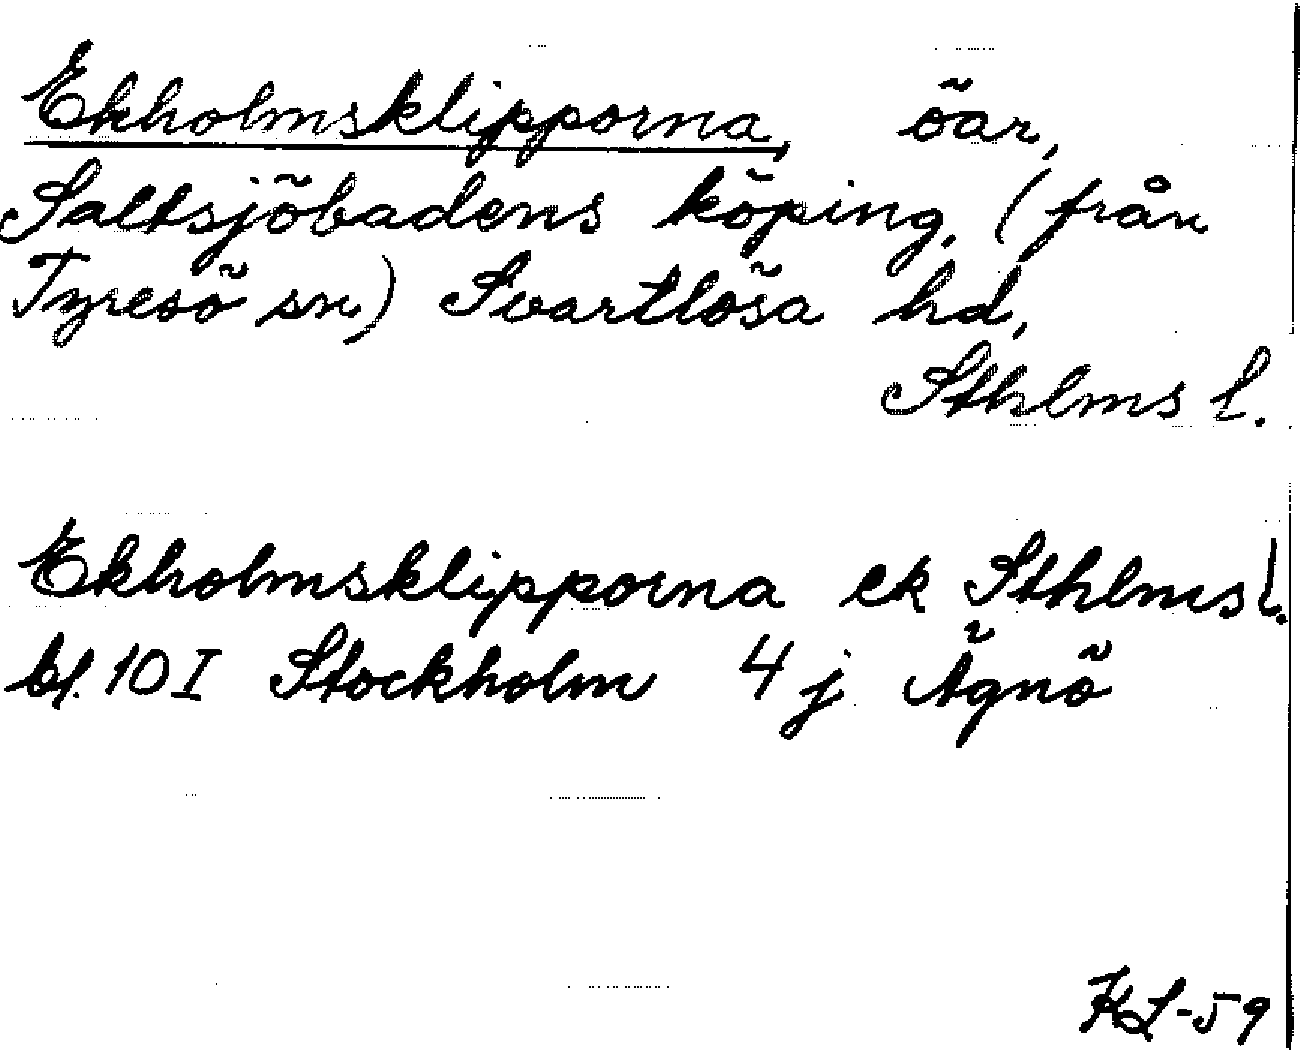 Ekholmsklipporna, öar,
Saltsjöbadens köping, (från
Tyresö sn) Svartlösa hd,
Sthlms l.
Ekholmsklipporna ek Sthlms l.
bl. 10 I Stockholm 4 j Ägnö
KL-59